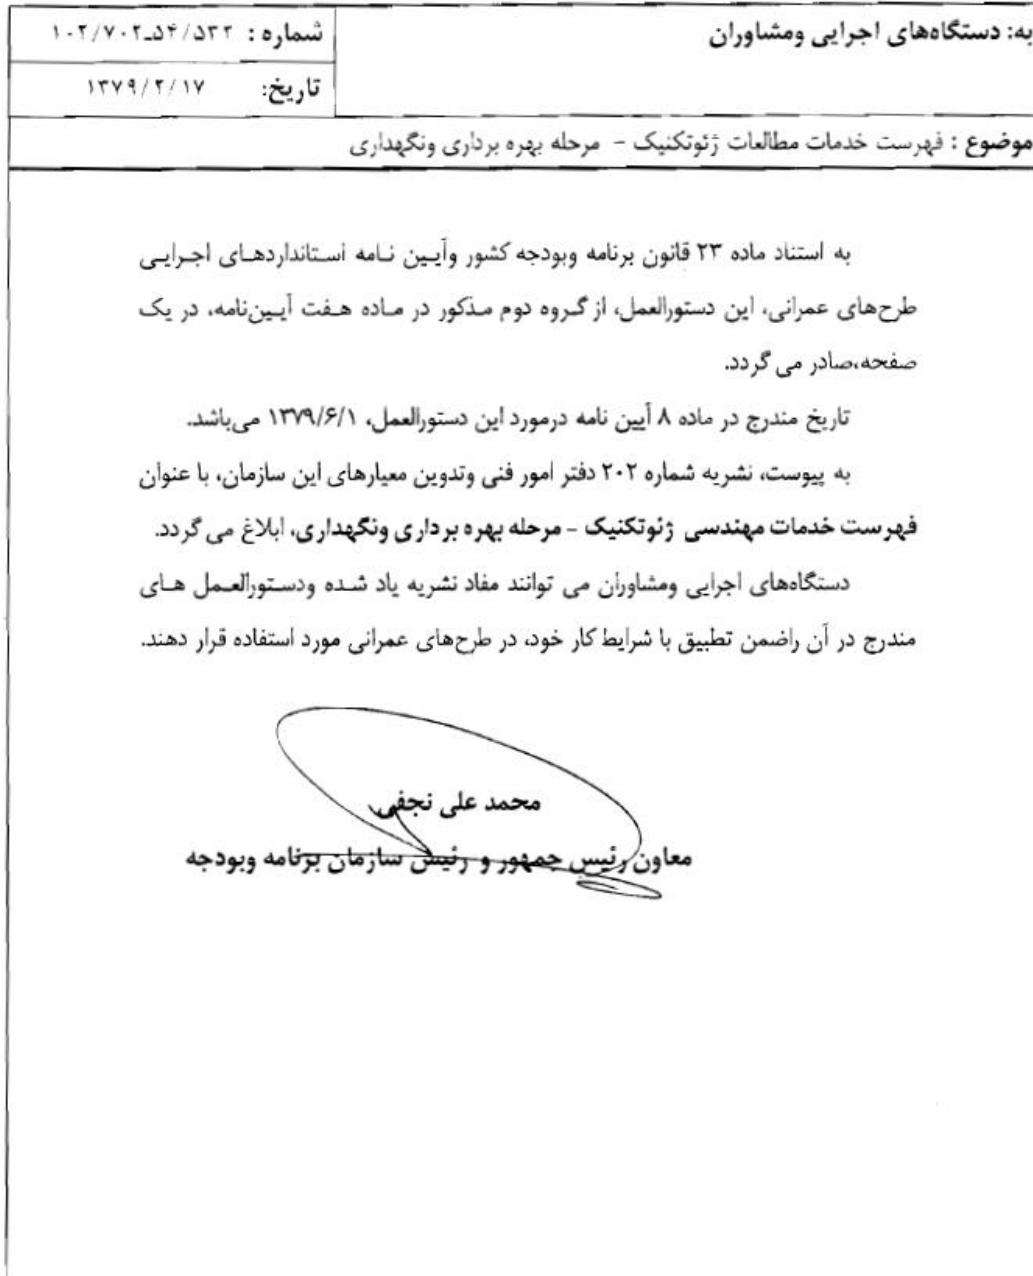 به: دستگاه‌های اجرایی ومشاوران
شماره : ۱۰۲/۷۰۲-۵۴/۵۳۲
تاریخ: ۱۳۷۹/۲/۱۷
موضوع : فهرست خدمات مطالعات ژئوتکنیک - مرحله بهره برداری ونگهداری
به استناد ماده ۲۳ قانون برنامه وبودجه کشور وآیـین نـامه اسـتانداردهـای اجـرایـی
طرح‌های عمرانی، این دستورالعمل، از گـروه دوم مـذکور در مـاده هـفت آیـین‌نامه، در یک
صفحه،صادر می گردد.
تاریخ مندرج در ماده ۸ آیین نامه درمورد این دستورالعمل، ۱۳۷۹/۶/۱ می‌باشد.
به پیوست، نشریه شماره ۲۰۲ دفتر امور فنی وتدوین معیارهای این سازمان، با عنوان
فهرست خدمات مهندسی ژئوتکنیک - مرحله بهره برداری ونگهداری، ابلاغ می گردد.
دستگاه‌های اجرایی ومشاوران می توانند مفاد نشریه یاد شـده ودسـتورالعـمل هـای
مندرج در آن راضمن تطبیق با شرایط کار خود، در طرح‌های عمرانی مورد استفاده قرار دهند.
محمد علی نجفی
معاون رئیس جمهور و رئیس سازمان برنامه وبودجه